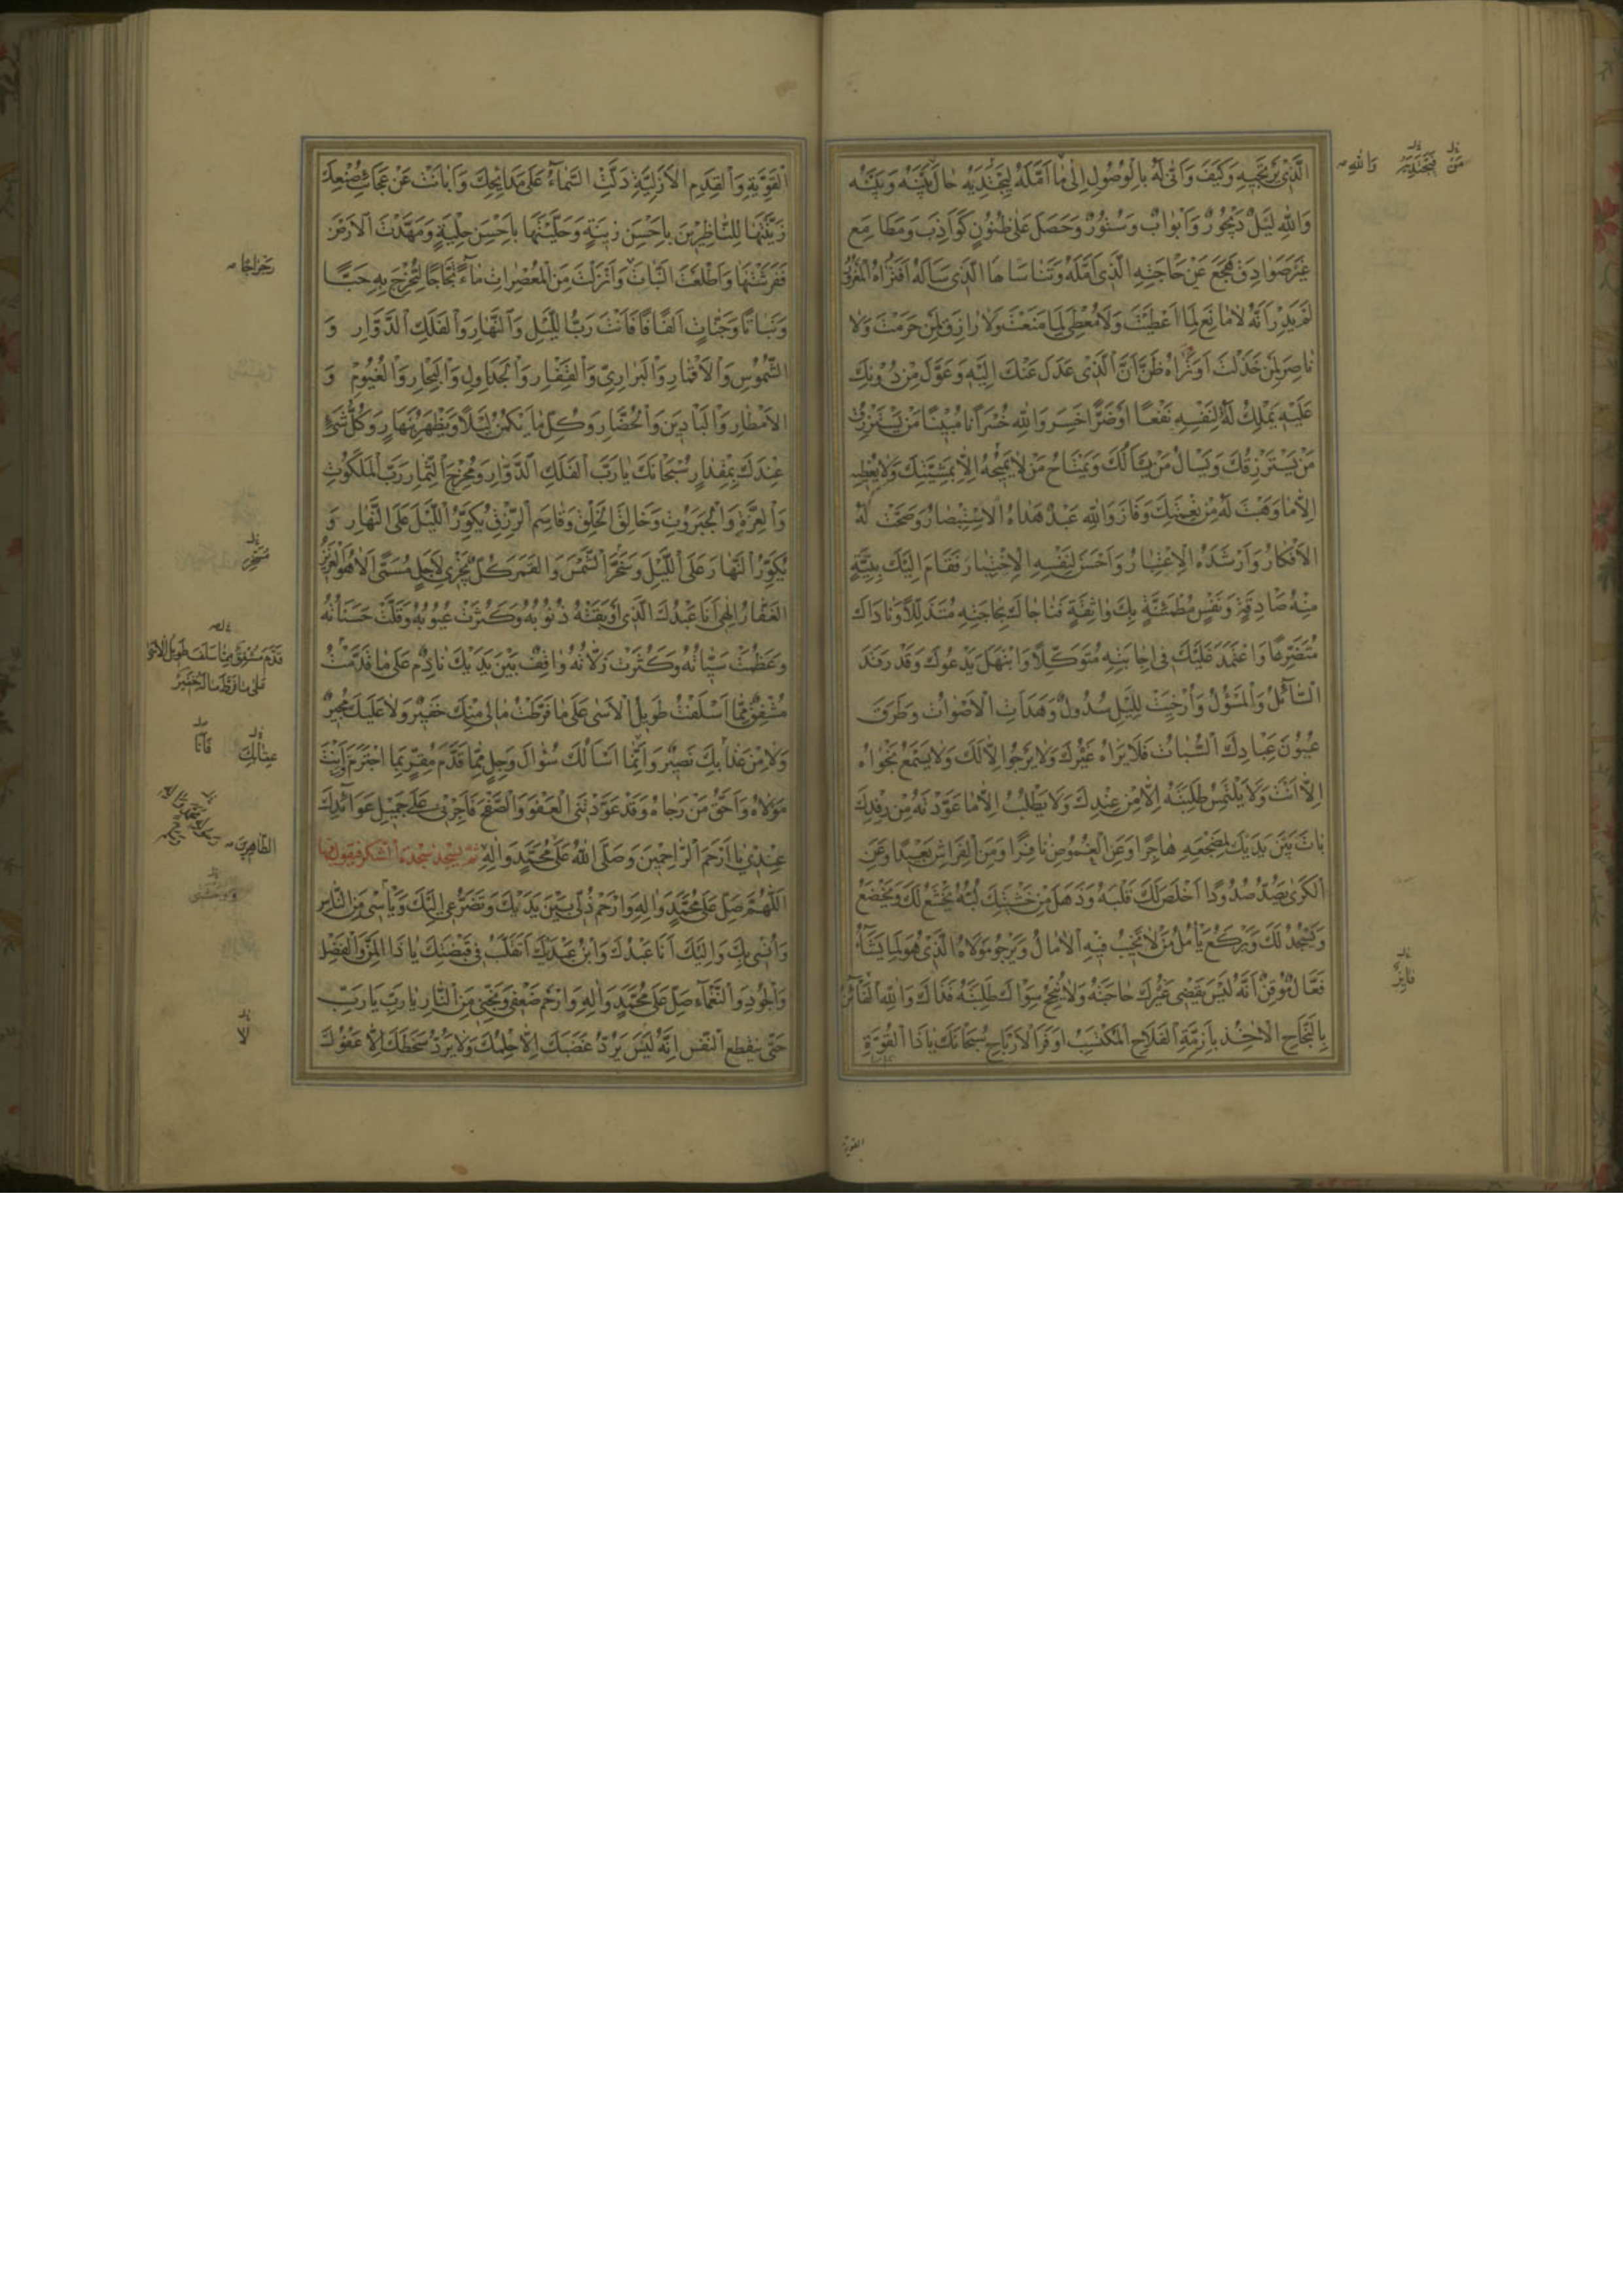 الَّذِي يَرْتَجِيهِ وَكَيْفَ وَأَنّى لَهُ بِالْوُصُولِ إِلى مَا أَمَّلَهُ لِيَجْتَدِيَهُ حَالَ بَيْنَهُ وَبَيْنَهُ
وَاللهِ لَيْلٌ دَيْجُورٌ وَأَبْوَابٌ وَسُتُورٌ وَحَصَلَ عَلى ظُنُونٍ كَوَاذِبَ وَمَطَامِعِ
غَيْرِ صَوَادِقَ هَجَعَ عَنْ حَاجَتِهِ الَّذِي أَمَّلَهُ وَتَنَاسَاهَا الَّذِي سَأَلَهُ أَفَتَرَاهُ الْمَغْرُورَ
لَمْ يَدْرِ أَنَّهُ لَا مَانِعَ لِمَا أَعْطَيْتَ وَلَا مُعْطِيَ لِمَا مَنَعْتَ وَلَا رَازِقَ لِمَنْ حَرَمْتَ وَلَا
نَاصِرَ لِمَنْ خَذَلْتَ أَوَتَرَاهُ ظَنَّ أَنَّ الَّذِي عَدَلَ عَنْكَ إِلَيْهِ وَعَوَّلَ مِنْ دُونِكَ
عَلَيْهِ يَمْلِكُ لَهُ لِنَفْسِهِ نَفْعًا أَوْ ضَرًّا خَسِرَ وَاللهِ خُسْرَانًا مُبِينًا مَنْ يَسْتَرْزِقُ
مَنْ يَسْتَرْزِقُكَ وَيَسْأَلُ مَنْ يَسْأَلُكَ وَيَمْتَاحُ مَنْ لَا يَمِيحُهُ إِلَّا بِمَشِيَّتِكَ وَلَا يُعْطِيهِ
إِلَّا مَا وَهَبْتَ لَهُ مِنْ نِعْمَتِكَ وَفَازَ وَاللهِ عَبْدٌ هَدَاهُ الْاِسْتِبْصَارُ وَصَحَّتْ لَهُ
الْأَفْكَارُ وَأَرْشَدَهُ الْاِعْتِبَارُ وَأَحْسَنَ لِنَفْسِهِ الْاِخْتِيَارَ فَقَامَ إِلَيْكَ بِنِيَّةٍ
مِنْهُ صَادِقَةٍ وَنَفْسٍ مُطْمَئِنَّةٍ بِكَ وَاثِقَةٍ فَنَاجَاكَ بِحَاجَتِهِ مُتَذَلِّلًا وَنَادَاكَ
مُتَضَرِّعًا وَاعْتَمَدَ عَلَيْكَ فِي إِجَابَتِهِ مُتَوَكِّلًا وَابْتَهَلَ يَدْعُوكَ وَقَدْ رَقَدَ
السَّائِلُ وَالْمَسْؤُلُ وَأُرْخِيَتْ لِلَّيْلِ سُدُولٌ وَهَدَأَتِ الْأَصْوَاتُ وَطَرَقَ
عُيُونَ عِبَادِكَ السُّبَاتُ فَلَا يَرَاهُ غَيْرُكَ وَلَا يَرْجُو إِلَّا لَكَ وَلَا يَسْمَعُ نَجْوَاهُ
إِلَّا أَنْتَ وَلَا يَلْتَمِسُ طَلِبَتَهُ إِلَّا مِنْ عِنْدِكَ وَلَا يَطْلُبُ إِلَّا مَا عَوَّدْتَهُ مِنْ رِفْدِكَ
بَاتَ بَيْنَ يَدَيْكَ لِمَضْجَعِهِ هَاجِرًا وَعَنِ الْغُمُوضِ نَافِرًا وَمِنَ الْفِرَاشِ بَعِيدًا وَعَنِ
الْكَرى يَصُدُّ صُدُودًا أَخْلَصَ لَكَ قَلْبَهُ وَذَهَلَ مِنْ خَشْيَتِكَ لُبُّهُ يَخْشَعُ لَكَ وَيَخْضَعُ
وَيَسْجُدُ لَكَ وَيَرْكَعُ يَأْمُلُ مَنْ لَا تَخِيبُ فِيهِ الْآمَالُ وَيَرْجُو مَوْلَاهُ الَّذِي هُوَ لِمَا يَشَاءُ
فَعَّالٌ مُوقِنٌ أَنَّهُ لَيْسَ يَقْضِي غَيْرُكَ حَاجَتَهُ وَلَا يُنْجِحُ سِوَاكَ طَلِبَتَهُ فَذَاكَ وَاللهِ الْفَائِزُ
بِالنَّجَاحِ الْآخِذُ بِأَزِمَّةِ الْفَلَاحِ الْمُكْتَسِبُ أَوْفَرَ الْأَرْبَاحِ سُبْحَانَكَ يَا ذَا الْقُوَّةِ
القوية
مَنْ
وَاللهِ
فَائِز
الْقَوِيَّةِ وَالْقِدَمِ الْأَزَلِيَّةِ دَلَّتِ السَّمَاءُ عَلى مَدَائِحِكَ وَأَبَانَتْ عَنْ عَجَائِبِ صُنْعِكَ
زَيَّنْتَهَا لِلنَّاظِرِينَ بِأَحْسَنِ زِينَةٍ وَحَلَّيْتَهَا بِأَحْسَنِ حِلْيَةٍ وَمَهَّدْتَ الْأَرْضَ
فَفَرَشْتَهَا وَأَطْلَعْتَ النَّبَاتَ وَأَنْزَلْتَ مِنَ الْمُعْصِرَاتِ مَاءً ثَجَّاجًا لِتُخْرِجَ بِهِ حَبًّا
وَنَبَاتًا وَجَنَّاتٍ أَلْفَافًا فَأَنْتَ رَبُّ اللَّيْلِ وَالنَّهَارِ وَالْفَلَكِ الدَّوَّارِ وَ
الشُّمُوسِ وَالْأَقْمَارِ وَالْبَرَارِي وَالْقِفَارِ وَالْجَدَاوِلِ وَالْبِحَارِ وَالْغُيُومِ وَ
الْأَمْطَارِ وَالْبَادِينَ وَالْحُضَّارِ وَكُلِّ مَا يَكْمُنُ لَيْلًا وَيَظْهَرُ بِنَهَارٍ وَكُلُّ شَيْءٍ
عِنْدَكَ بِمِقْدَارٍ سُبْحَانَكَ يَا رَبَّ الْفَلَكِ الدَّوَّارِ وَمُخْرِجَ الثِّمَارِ رَبَّ الْمَلَكُوتِ
وَالْعِزَّةِ وَالْجَبَرُوتِ وَخَالِقَ الْخَلْقِ وَقَاسِمَ الرِّزْقِ يُكَوِّرُ اللَّيْلَ عَلَى النَّهَارِ وَ
يُكَوِّرُ النَّهَارَ عَلَى اللَّيْلِ وَسَخَّرَ الشَّمْسَ وَالْقَمَرَ كُلٌّ يَجْرِي لِأَجَلٍ مُسَمًّى أَلَا هُوَ الْعَزِيزُ
الْغَفَّارُ إِلهِي أَنَا عَبْدُكَ الَّذِي أَوْبَقَتْهُ ذُنُوبُهُ وَكَثُرَتْ عُيُوبُهُ وَقَلَّتْ حَسَنَاتُهُ
وَعَظُمَتْ سَيِّئَاتُهُ وَكَثُرَتْ زَلَّاتُهُ وَاقِفٌ بَيْنَ يَدَيْكَ نَادِمٌ عَلى مَا قَدَّمْتُ
مُشْفِقٌ مِمَّا أَسْلَفْتُ طَوِيلُ الْأَسى عَلى مَا فَرَّطْتُ مَا لِي مِنْكَ خَفِيرٌ وَلَا عَلَيْكَ مُجِيرٌ
وَلَا مِنْ عَذَابِكَ نَصِيرٌ وَإِنَّمَا أَسْأَلُكَ سُؤَالَ وَجِلٍ مِمَّا قَدَّمَ مُقِرٍّ بِمَا اجْتَرَمَ وَأَنْتَ
مَوْلَاهُ وَأَحَقُّ مَنْ رَجَاهُ وَقَدْ عَوَّدْتَنِي الْعَفْوَ وَالصَّفْحَ فَأَجْرِنِي عَلى جَمِيلِ عَوَائِدِكَ
عِنْدِي يَا أَرْحَمَ الرَّاحِمِينَ وَصَلَّى اللهُ عَلى مُحَمَّدٍ وَآلِهِ ثم يسجد سجدة الشكر فيقول فيها
اَللّهُمَّ صَلِّ عَلى مُحَمَّدٍ وَآلِهِ وَارْحَمْ ذُلِّي بَيْنَ يَدَيْكَ وَتَضَرُّعِي إِلَيْكَ وَيَأْسِي مِنَ النَّاسِ
وَأُنْسِي بِكَ وَإِلَيْكَ أَنَا عَبْدُكَ وَابْنُ عَبْدَيْكَ أَتَقَلَّبُ فِي قَبْضَتِكَ يَا ذَا الْمَنِّ وَالْفَضْلِ
وَالْجُودِ وَالنَّعْمَاءِ صَلِّ عَلى مُحَمَّدٍ وَآلِهِ وَارْحَمْ ضَعْفِي وَنَجِّنِي مِنَ النَّارِ يَا رَبِّ يَا رَبِّ
حَتّى يَنْقَطِعَ النَّفَسُ إِنَّهُ لَيْسَ يَرُدُّ غَضَبَكَ إِلَّا حِلْمُكَ وَلَا يَرُدُّ سَخَطَكَ إِلَّا عَفْوُكَ
قَدَّمَ مُشْفِقٌ مِمَّا سَلَفَ طَوِيلُ الْأَسى
عَلى مَا فَرَطَ مَا لَهُ خَفِيرٌ
فَأَنَا
عِقَابِكَ
الطَّاهِرِينَ
وَوَحْشَتِي
لا